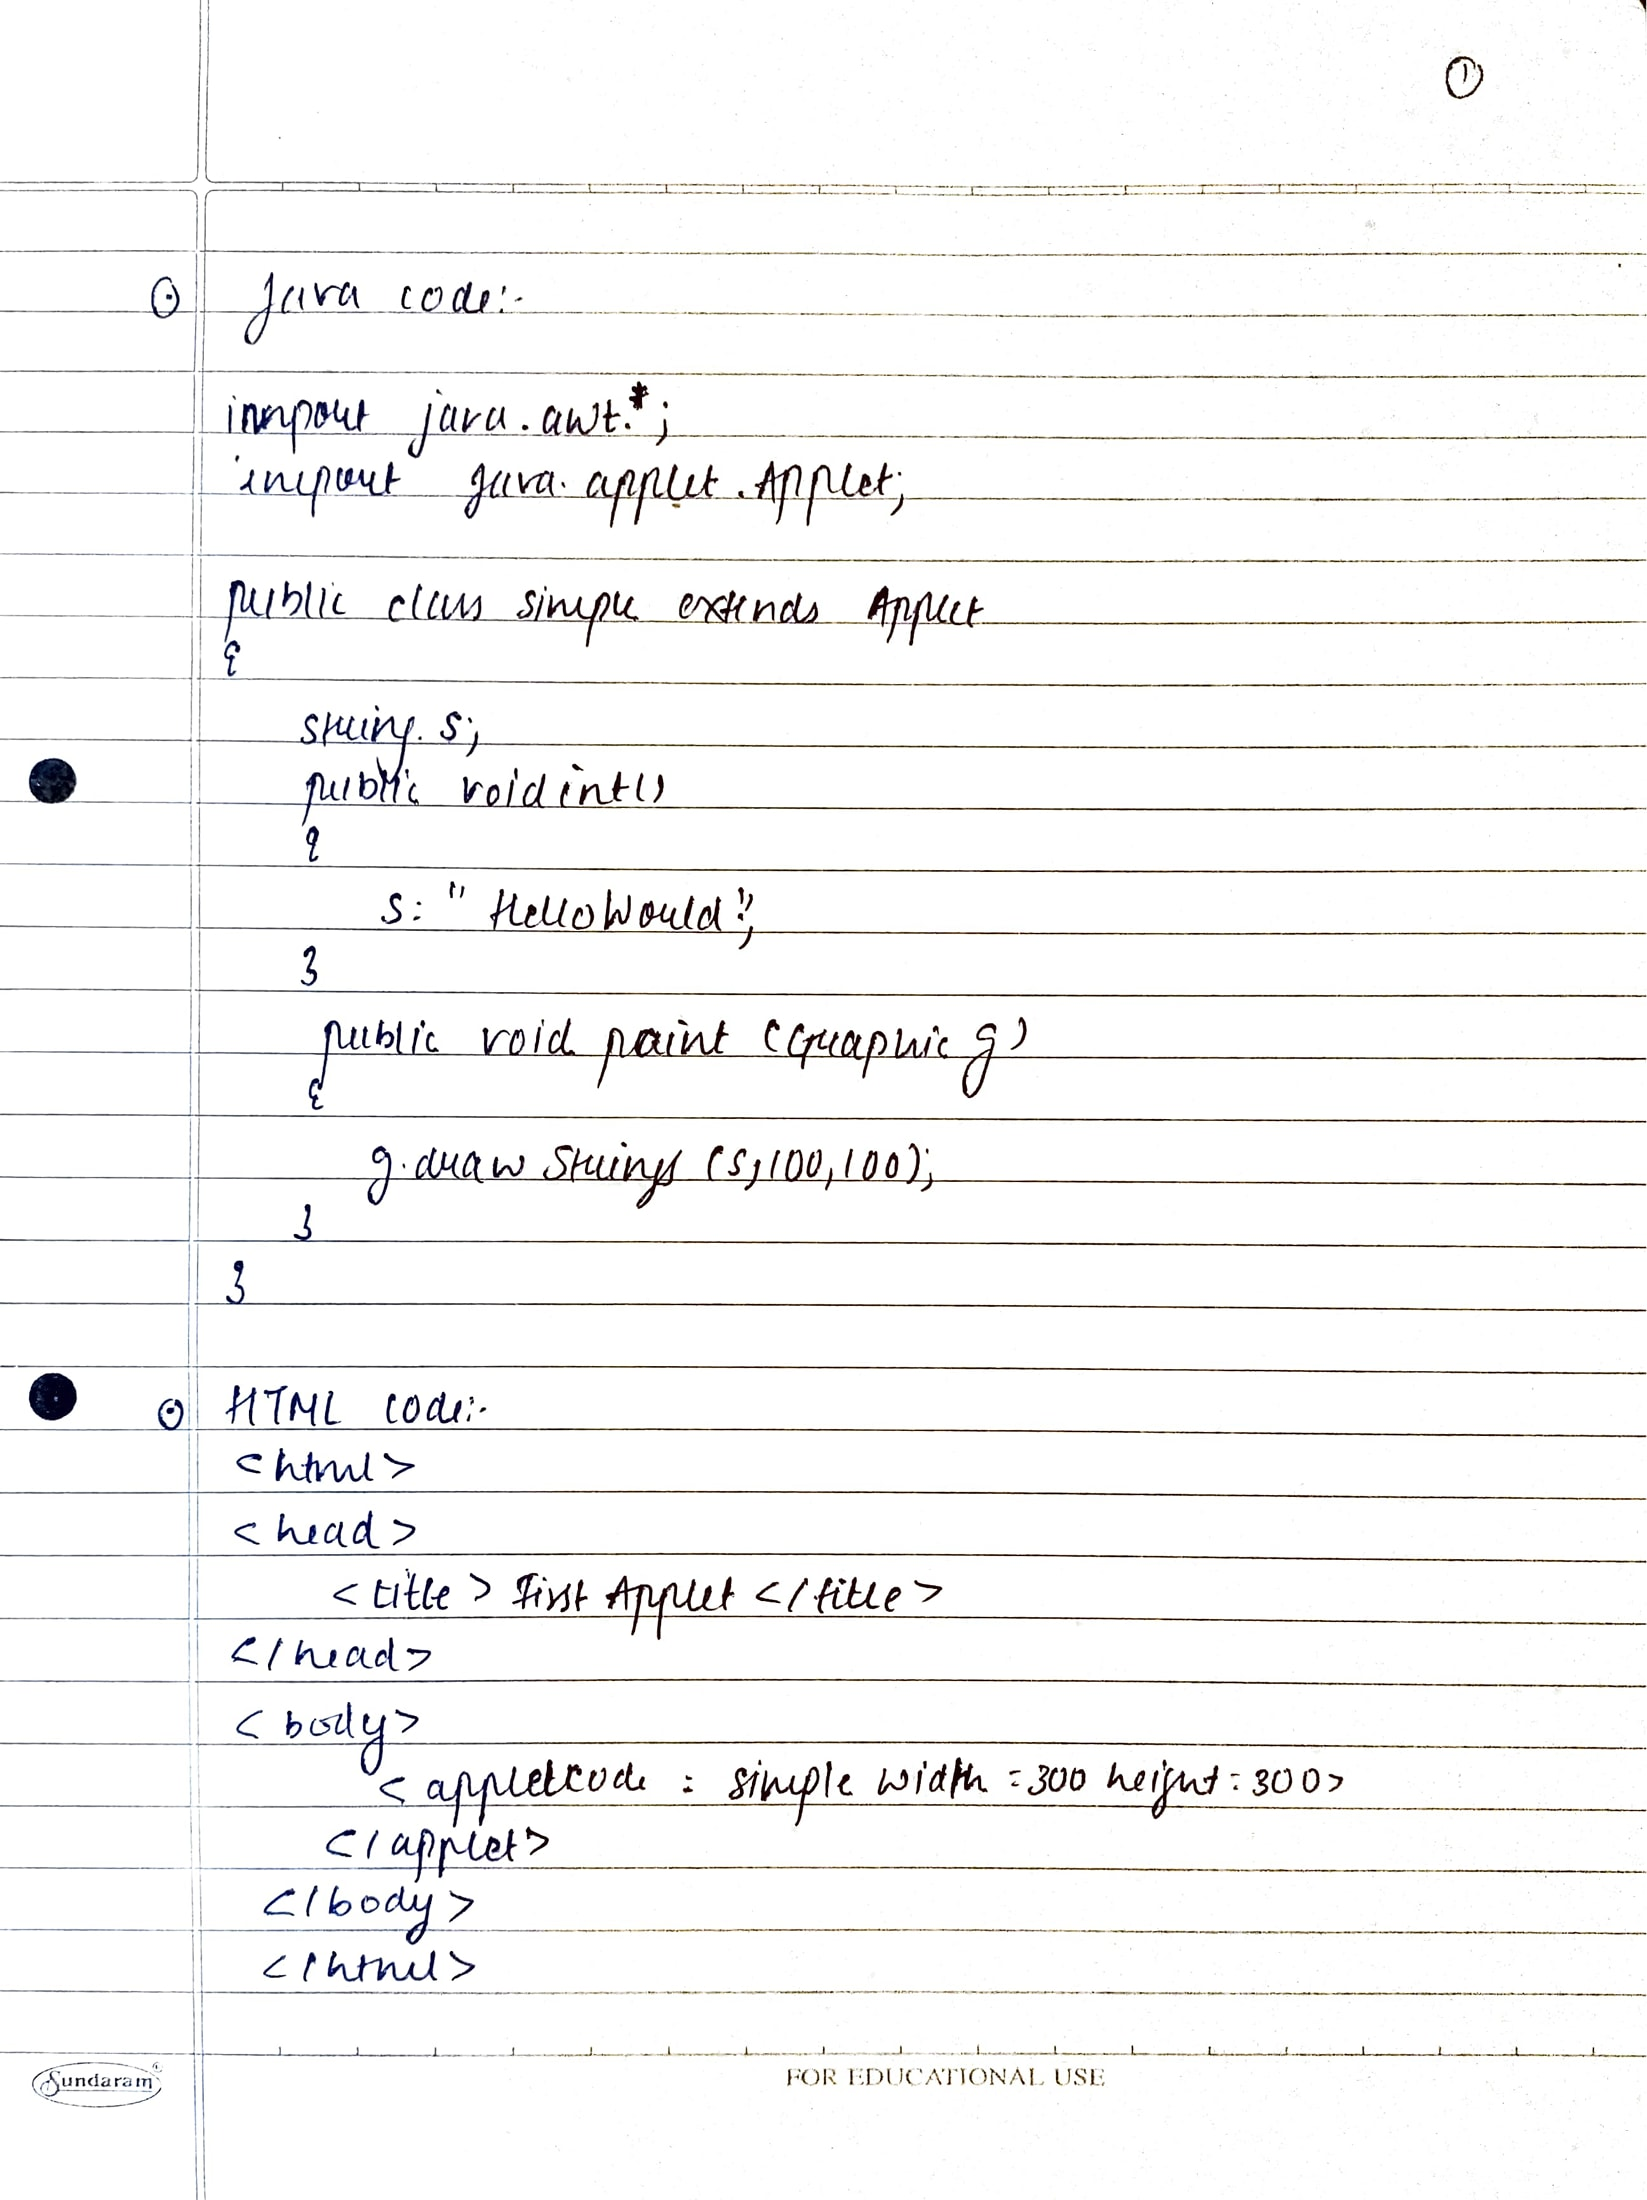 1
Java code:-
import java.awt.*;
import java.applet.Applet;
public class simple extends Applet
{
string. s;
public void int()
{
s: "HelloWorld";
}
public void paint (Graphic g)
{
g.draw Strings (s,100,100);
}
}
HTML code:-
<html>
<head>
<title> First Applet </title>
</head>
<body>
<appletcode = simple width =300 height=300>
</applet>
</body>
</html>
Sundaram
FOR EDUCATIONAL USE